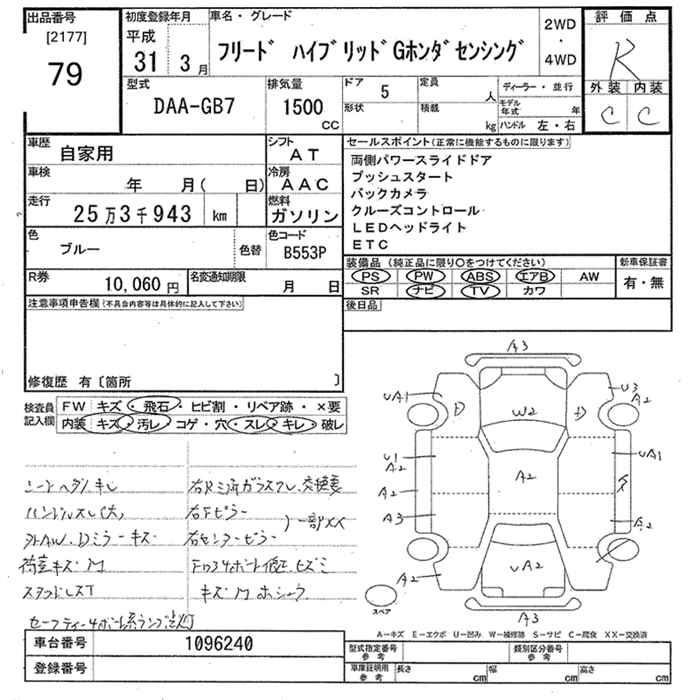 出品番号
[2177]
79
初度登録年月
平成
31 3月
車名・グレード
フリード ハイブリッドGホンダセンシング
2WD
・
4WD
評価点
R
外装 内装
C C
型式
DAA-GB7
排気量
1500
CC
ドア
5
形状
定員
人
積載
kg
ディーラー・並行
モデル年式 年
ハンドル 左・右
車歴
自家用
シフト
AT
車検
年 月( 日)
冷房
AAC
走行
25万3千943 km
燃料
ガソリン
色
ブルー
色替
色コード
B553P
R券
10,060円
名変通知期限
月 日
セールスポイント(正常に機能するものに限ります)
両側パワースライドドア
プッシュスタート
バックカメラ
クルーズコントロール
LEDヘッドライト
ETC
装備品(純正品に限り○をつけてください)
PS PW ABS エアB AW
SR ナビ TV カワ
新車保証書
有・無
後日品
注意事項申告欄(不具合内容等は具体的に記入して下さい)
修復歴 有〔箇所 〕
検査員
記入欄
FW キズ・飛石・ヒビ割・リペア跡・×要
内装 キズ・汚レ・コゲ・穴・スレ・キレ・破レ
シートヘタリ、キレ
ハンドルスレ(大)
外AW、Dミラーキズ
荷室キズM
右Fピラー
右センターピラー
一部XX
A3
UA1
U3
A2
W2
U1
A2
A2
A3
A2
UA1
A2
A2
UA2
A2
A3
スペア
A―キズ E―エクボ U―凹み W―補修跡 S―サビ C―腐食 XX―交換済
車台番号
1096240
登録番号
型式指定番号
参考
類別区分番号
参考
車庫証明用
参考
長さ cm
幅 cm
高さ cm